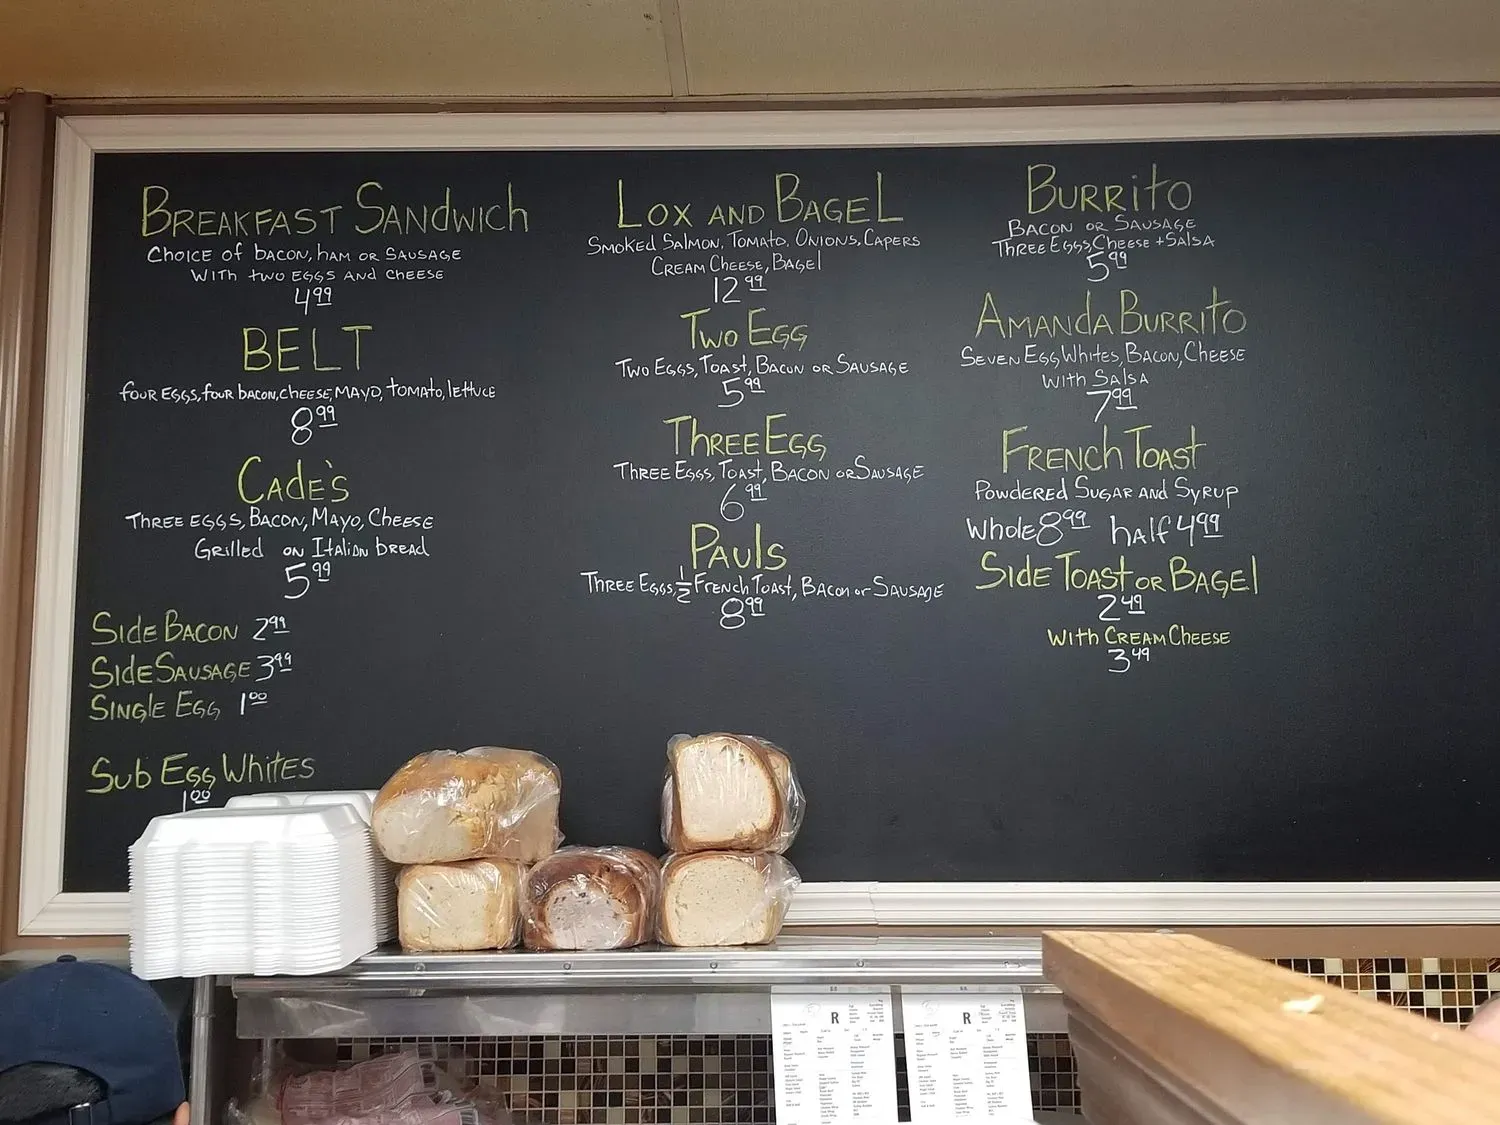 BREAKFAST SANDWICH
CHOICE OF BACON, HAM OR SAUSAGE
WITH TWO EGGS AND CHEESE
4.99
BELT
FOUR EGGS, FOUR BACON, CHEESE, MAYO, TOMATO, LETTUCE
8.99
CADE'S
THREE EGGS, BACON, MAYO, CHEESE
GRILLED ON ITALIAN BREAD
5.99
SIDE BACON 2.99
SIDE SAUSAGE 3.99
SINGLE EGG 1.00
SUB EGG WHITES
1.00
LOX AND BAGEL
SMOKED SALMON, TOMATO, ONIONS, CAPERS
CREAM CHEESE, BAGEL
12.99
TWO EGG
TWO EGGS, TOAST, BACON OR SAUSAGE
5.99
THREE EGG
THREE EGGS, TOAST, BACON OR SAUSAGE
6.99
PAULS
THREE EGGS, 1/2 FRENCH TOAST, BACON OR SAUSAGE
8.99
BURRITO
BACON OR SAUSAGE
THREE EGGS, CHEESE + SALSA
5.99
AMANDA BURRITO
SEVEN EGG WHITES, BACON, CHEESE
WITH SALSA
7.99
FRENCH TOAST
POWDERED SUGAR AND SYRUP
WHOLE 8.99 HALF 4.99
SIDE TOAST OR BAGEL
2.49
WITH CREAM CHEESE
3.49
R
R